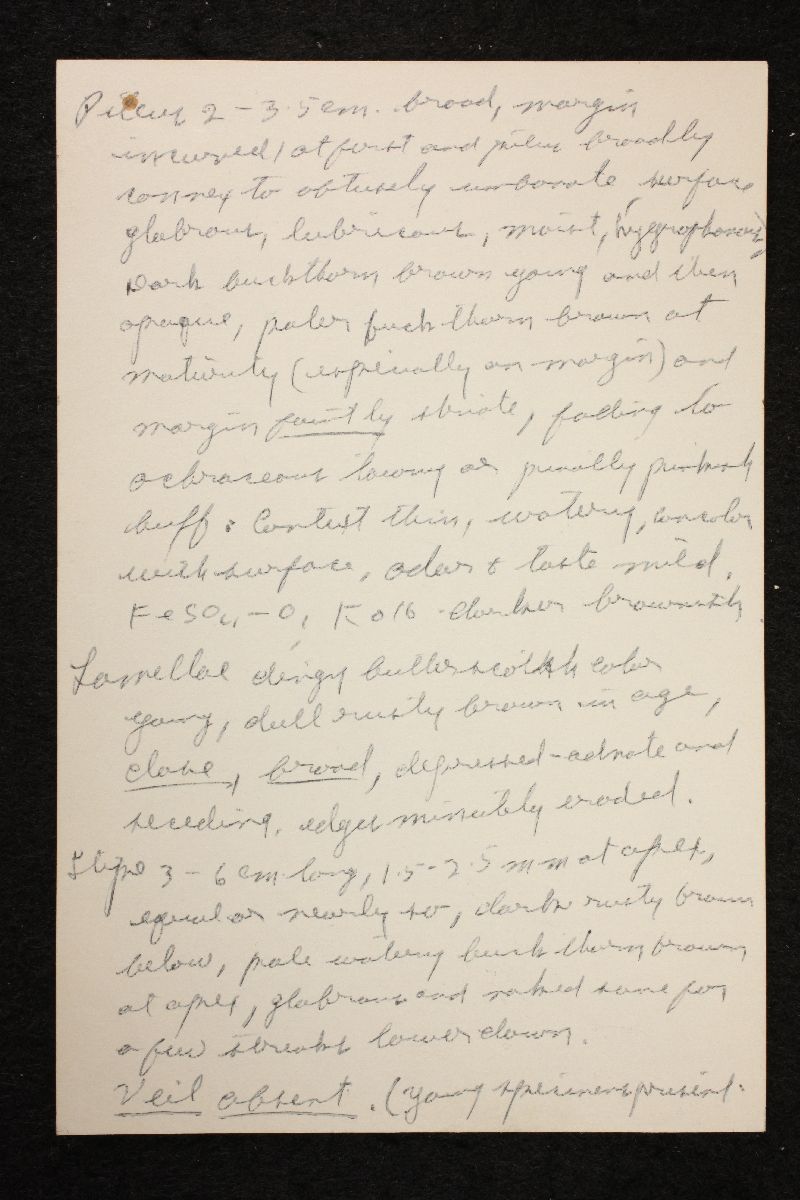 Pileus 2 – 3.5 cm. broad, margin
incurved at first and pileus broadly
convex to obtusely umbonate, surface
glabrous, lubricous, moist, hygrophanous,
Dark buckthorn brown young and then
opaque, paler buckthorn brown at
maturity (especially on margin) and
margin faintly striate, fading to
ochraceous tawny or pinkish
buff. Context thin, watery, concolor
with surface, odor & taste mild,
FeSO4 – 0, KOH – darker brownish
Lamellae dingy butterscotch color
young, dull rusty brown in age,
close, broad, depressed-adnate and
seceding, edges minutely eroded.
Stipe 3 – 6 cm long, 1.5 – 2.5 mm at apex,
equal or nearly so, dark rusty brown
below, pale watery buckthorn brown
at apex, glabrous and naked save for
a few streaks lower down.
Veil absent. (young specimens present.